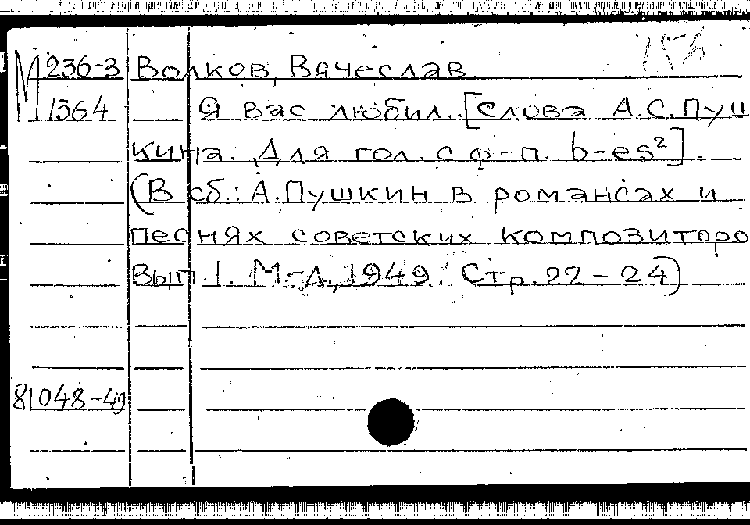 М 236-3 Волков, Вячеслав
1364 Я вас любил. [Слова А.С. Пуш
кина. Для гол. с ф-п. b-es²].
(В сб.: А. Пушкин в романсах и
песнях советских композиторо
Вып. 1. М.-Л., 1949. Стр. 22-24)
81048-49